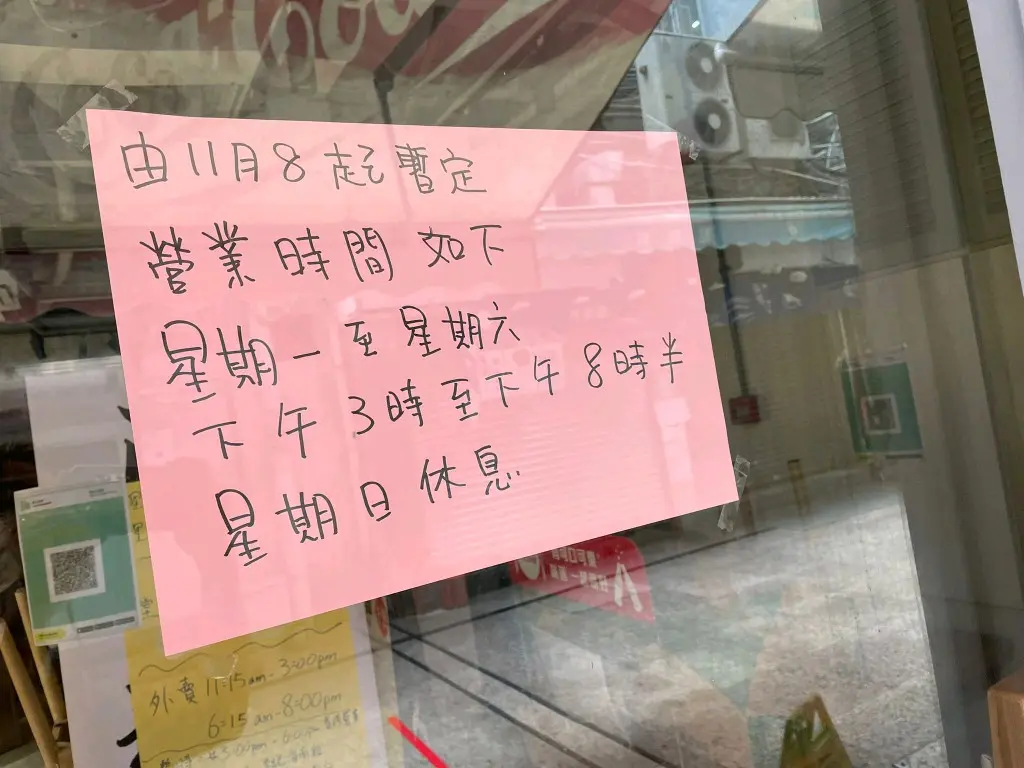 由11月8起暫定
營業時間如下
星期一至星期六
下午3時至下午8時半
星期日休息
外賣 11:15am - 3:00pm
6:15am - 8:00pm